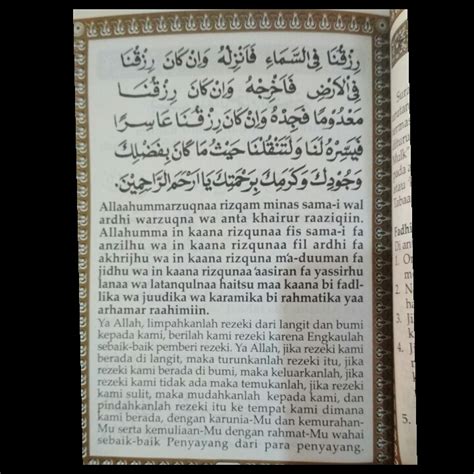 رِزْقُنَا فِى السَّمَاءِ فَاَنْزِلْهُ وَاِنْ كَانَ رِزْقُنَا
فِى الْاَرْضِ فَاَخْرِجْهُ وَاِنْ كَانَ رِزْقُنَا
مَعْدُوْمًا فَجِدْهُ وَاِنْ كَانَ رِزْقُنَا عَاسِرًا
فَيَسِّرْهُ لَنَا وَلَتَنْقُلْنَا حَيْثُ مَا كَانَ بِفَضْلِكَ
وَجُوْدِكَ وَكَرَمِكَ بِرَحْمَتِكَ يَا اَرْحَمَ الرَّاحِمِيْنَ.
Allaahummarzuqnaa rizqam minas sama-i wal
ardhi warzuqna wa anta khairur raaziqiin.
Allahumma in kaana rizqunaa fis sama-i fa
anzilhu wa in kaana rizqunaa fil ardhi fa
akhrijhu wa in kaana rizquna ma'-duuman fa
jidhu wa in kaana rizqunaa 'aasiran fa yassirhu
lanaa wa latanqulnaa haitsu maa kaana bi fadl-
lika wa juudika wa karamika bi rahmatika yaa
arhamar raahimiin.
Ya Allah, limpahkanlah rezeki dari langit dan bumi
kepada kami, berilah kami rezeki karena Engkaulah
sebaik-baik pemberi rezeki. Ya Allah, jika rezeki kami
berada di langit, maka turunkanlah rezeki itu, jika
rezeki kami berada di bumi, maka keluarkanlah, jika
rezeki kami tidak ada maka temukanlah, jika rezeki
kami sulit, maka mudahkanlah kepada kami, dan
pindahkanlah rezeki itu ke tempat kami dimana
kami berada, dengan karunia-Mu dan kemurahan-
Mu serta kemuliaan-Mu dengan rahmat-Mu wahai
sebaik-baik Penyayang dari para penyayang.
Di an
1.
2.
3.
4.
5.